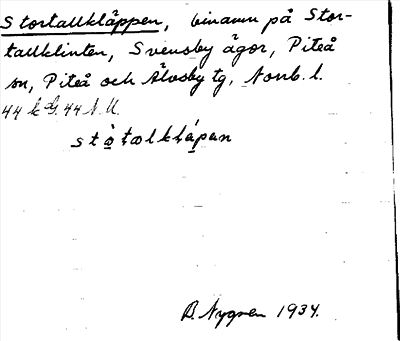 Stortallkläppen, binamn på Stor-
tallklinten, Svensby ägor, Piteå
sn, Piteå och Älvsby tg, Norrb. l.
44 k
stòtalklápan
B. Nygren 1934.